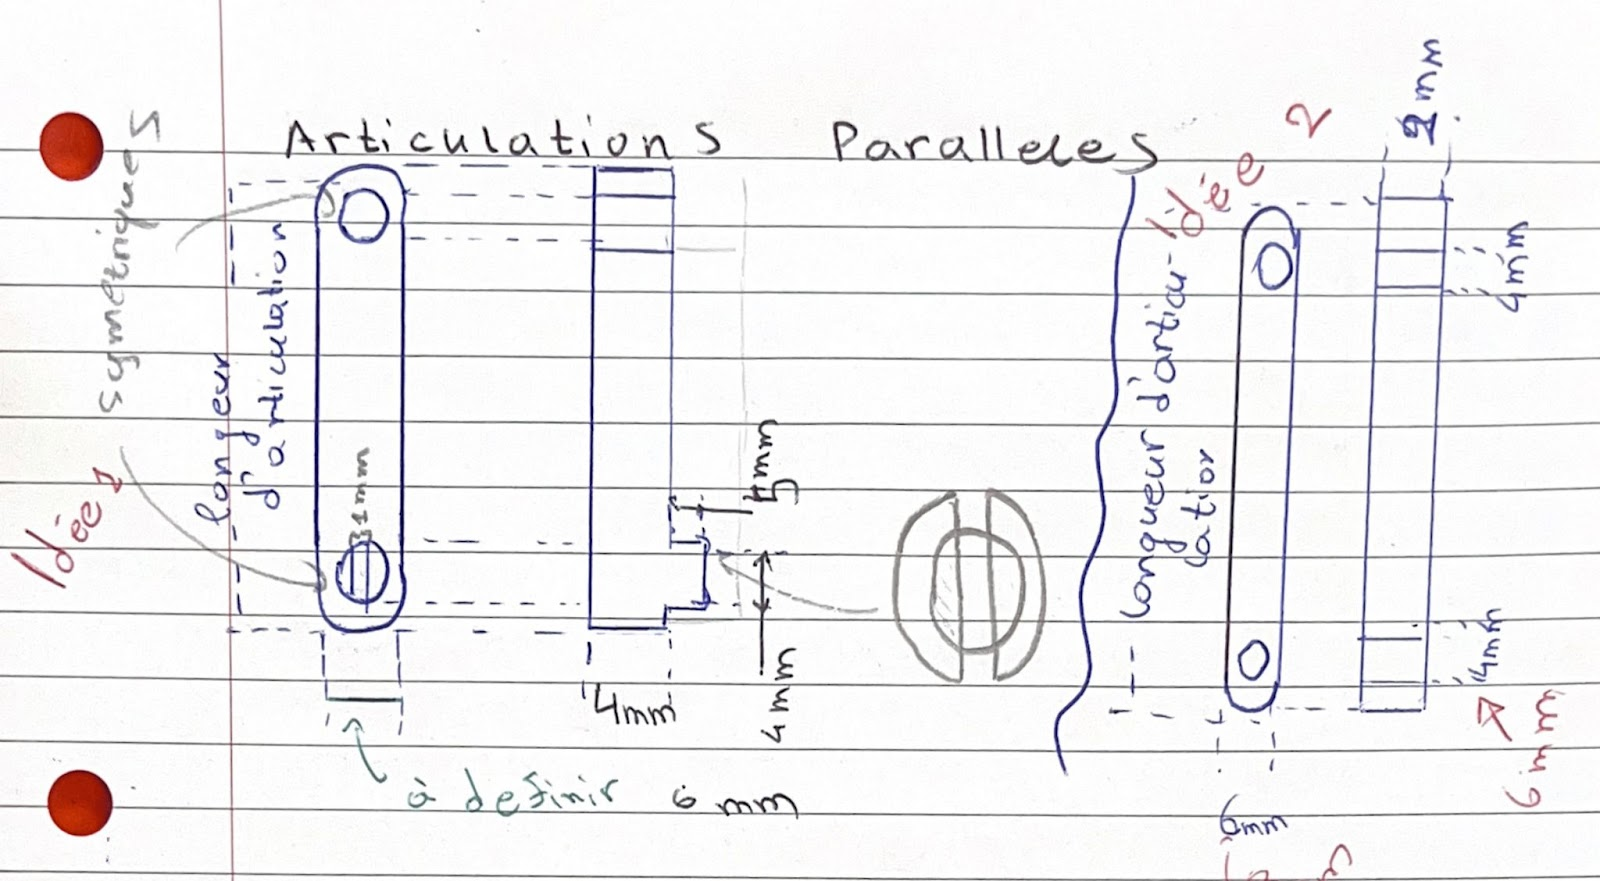 Articulations Paralleles
symétriques
Idée 1
longeur
d'articulation
1mm
4mm
4mm
à definir 6 mm
Idée 2
longueur d'articu-
lation
2mm
4mm
4mm
6mm
6mm